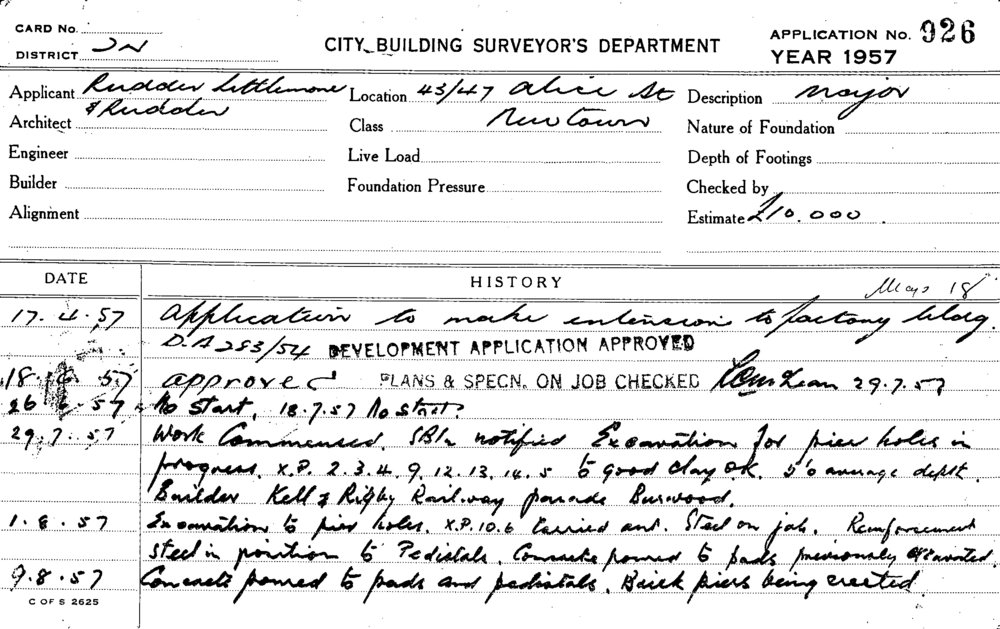 CARD No.
DISTRICT
CITY BUILDING SURVEYOR'S DEPARTMENT
APPLICATION No. 926
YEAR 1957
Applicant Rudder Littlemore
& Rudder
Architect
Engineer
Builder
Alignment
Location 43/47 Alice St
Newtown
Class
Live Load
Foundation Pressure
Description Major
Nature of Foundation
Depth of Footings
Checked by
Estimate £10.000.
DATE HISTORY
18
17.4.57 Application to make extension to factory bldg.
D.A 283/54 DEVELOPMENT APPLICATION APPROVED
18 57 approved PLANS & SPECN. ON JOB CHECKED 29.7.57
26 57 No start. 18.7.57 No start.
29.7.57 Work Commenced. notified Excavation for pier holes in
progress. X.P. 2.3.4.9.12.13.14.5 to good clay OK. 5'0 average depth.
Builder Kell & Rigby Railway parade Burwood.
1.8.57 Excavation to pier holes. X.P.10.6 carried out. Steel on job. Reinforcement
steel in position to Pedistals. Concrete poured to pads previously excavated.
9.8.57 Concrete poured to pads and pedistals. Brick piers being erected.
C OF S 2625